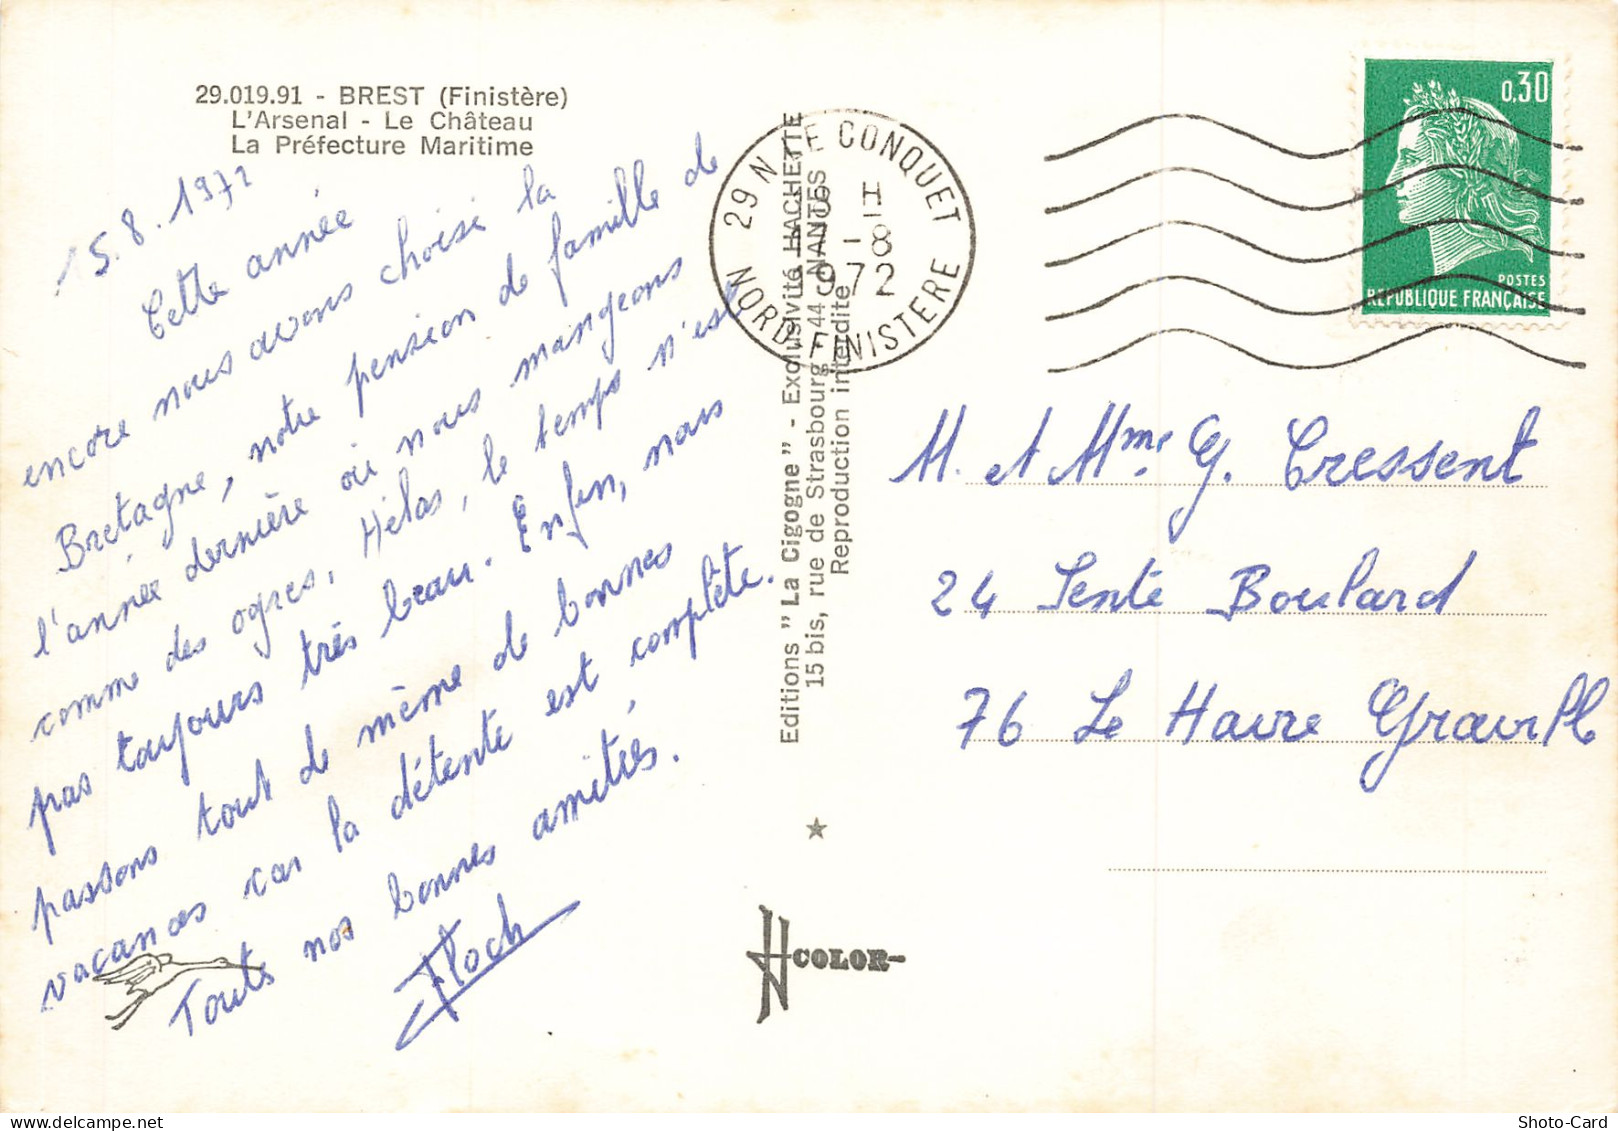 29.019.91 - BREST (Finistère)
L'Arsenal - Le Château
La Préfecture Maritime
15.8.1972
Cette année
encore nous avons choisi la
Bretagne, notre pension de famille de
l'année dernière où nous mangeons
comme des ogres. Hélas, le temps n'est
pas toujours très beau. Enfin, nous
passons tout de même de bonnes
vacances car la détente est complète.
Touts nos bonnes amitiés.
Floch
Editions "La Cigogne" - Exclusivité HACHETTE
15 bis, rue de Strasbourg 44 NANTES
Reproduction interdite
HCOLOR
29 N LE CONQUET
H
-8
1972
NORD-FINISTERE
0,30
POSTES
REPUBLIQUE FRANÇAISE
M. et Mme G. Cressent
24 Sente Boulard
76 Le Havre Graville
Shoto-Card